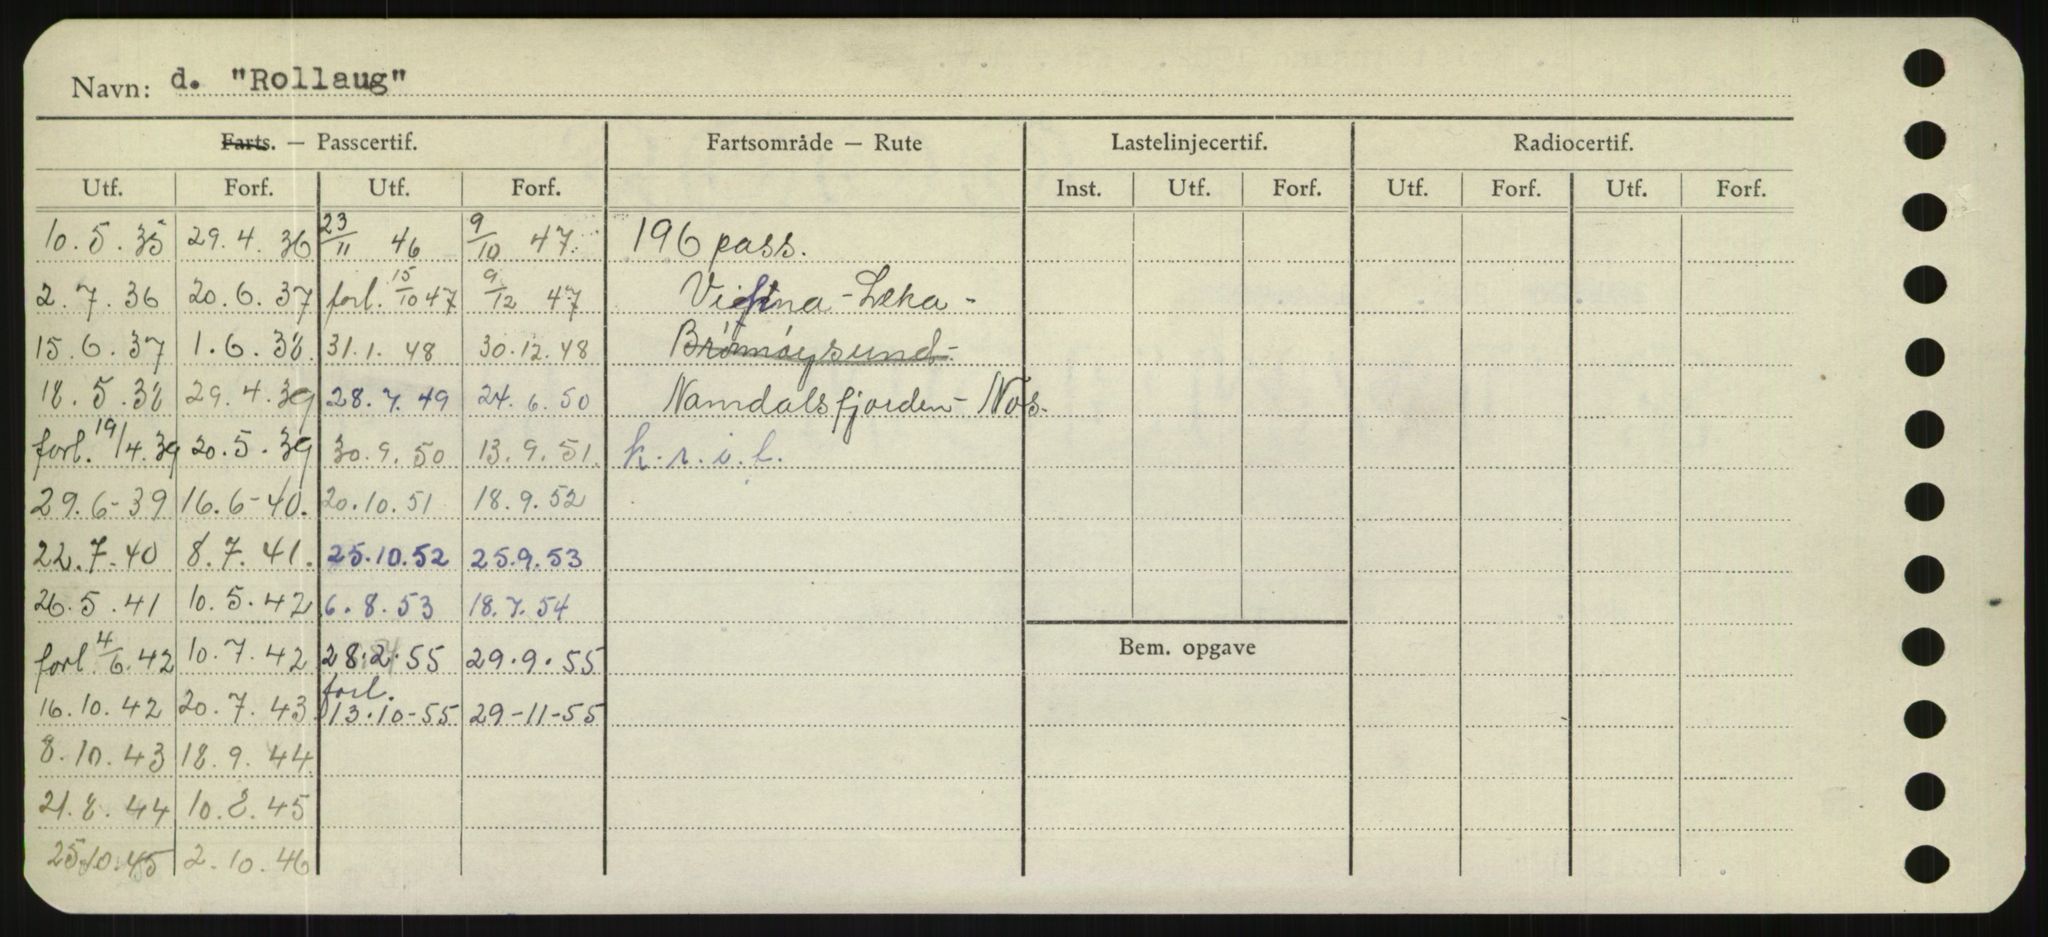 Navn: d. "Rollaug"
Farts. — Passcertif. Fartsområde — Rute Lastelinjecertif. Radiocertif.
Utf. Forf. Utf. Forf. Inst. Utf. Forf. Utf. Forf. Utf. Forf.
10.5.35 29.4.36 23/11 46 9/10 47 196 pass.
2.7.36 20.6.37 forl. 15/10 47 9/12 47 Vikna - Leka -
15.6.37 1.6.38 31.1.48 30.12.48 Brønnøysund -
18.5.38 29.4.39 28.7.49 24.6.50 Namdalsfjorden - Nos.
forl. 19/4.39 20.5.39 30.9.50 13.9.51 k.r.i.l.
29.6-39 16.6-40. 20.10.51 18.9.52
22.7.40 8.7.41. 25.10.52 25.9.53
26.5.41 10.5.42 6.8.53 18.7.54
forl 4/6.42 10.7.42 28.2.55 29.9.55 Bem. opgave
16.10.42 20.7.43 forl. 13.10-55 29-11-55
8.10.43 18.9.44
21.8.44 10.8.45
25.10.45 2.10.46